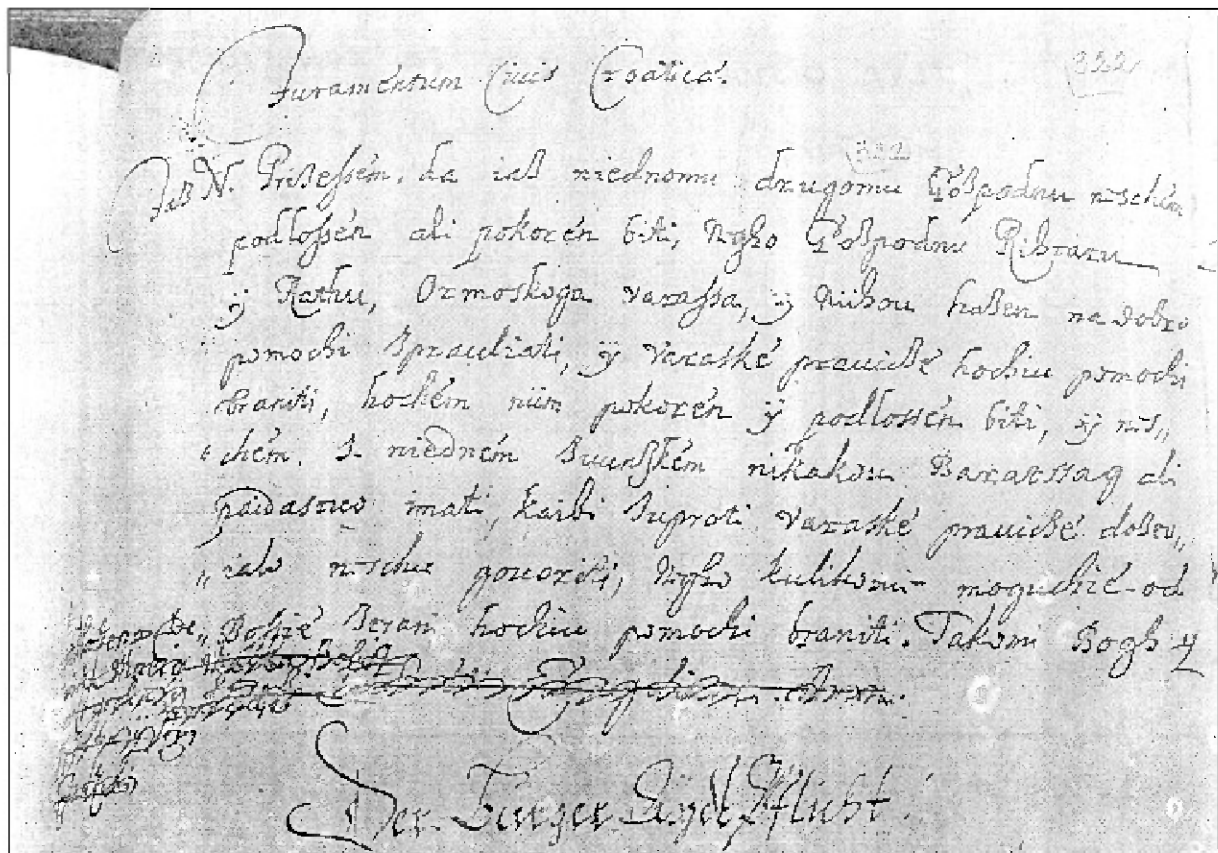 Juramentum Ciuis Croaticé.
332
332
Jaß N. Prißeßém, da iaß niednomu drugomu Goßpodnu nischém
podloßén ali pokorén biti, Nÿho Goßpodnu Rihtaru
ÿ Rathu, Ormoskiga varaßa, ÿ Niihou haßen na dobro
pomochi ßprauliati, ÿ varaské prauicßé hochiu pomochi
braniti, hochém niim pokorén ÿ podlossén biti, ÿ nis„
„chém. S niedném Suunßkém nikakou Baratssag ali
paidastvo imati, kaibi Suproti varaské prauicßé doßeu„
„iato nischu gouoriti, Nÿho kulikomi moguchié od
Boßié ßtrani hochiu pomochi braniti. Takomi Bogh ÿ
Der Burger Aÿdt Pflicht.